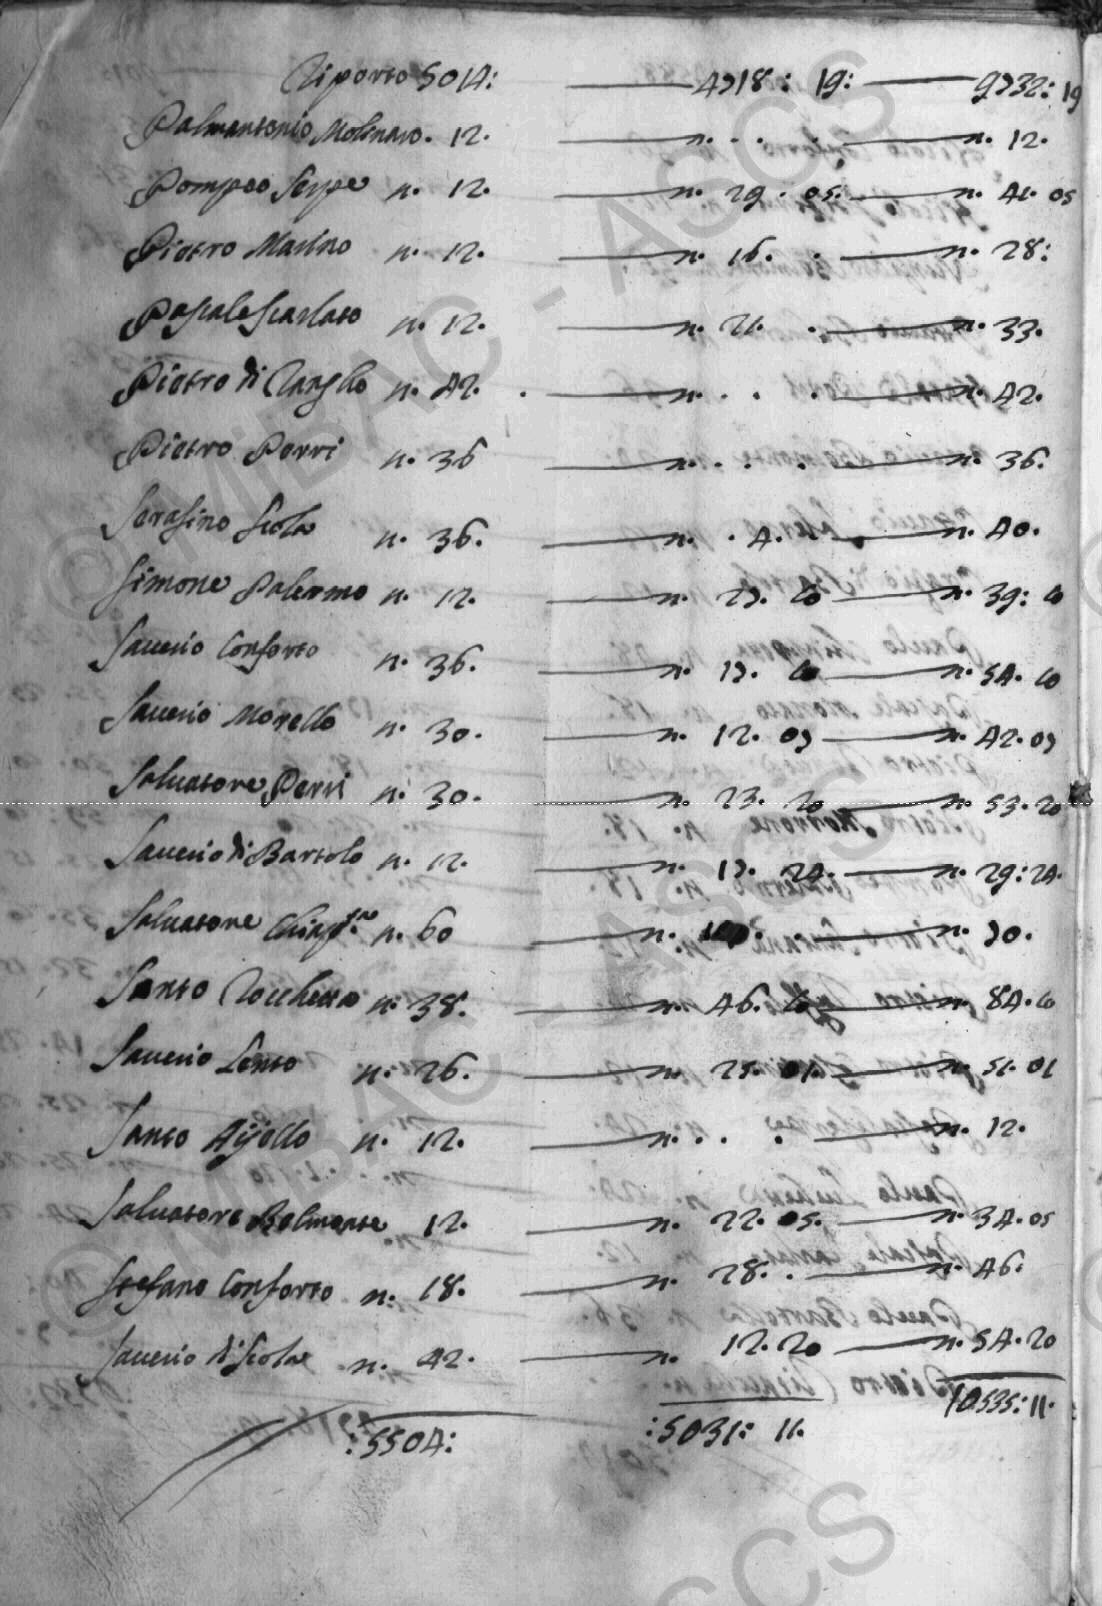 Riporto 5014: 4718: 19: 9732: 19
Palmantonio Molinaro. 12. n. . . . n. 12.
Pompeo Serpe n. 12. n. 29. 05. n. 41. 05
Pietro Marino n. 12. n. 16. . n. 28:
Pascale Scarlato n. 12. n. 21. . n. 33.
Pietro di n. 42. n. . . . n. 42.
Pietro Perri n. 36 n. . . . n. 36.
Serafino Scola n. 36. n. . 4. n. 40.
Simone Palermo n. 12. n. 27. 10 n. 39: 10
Sauerio Conforto n. 36. n. 17. 10 n. 54. 10
Sauerio Morello n. 30. n. 12. 07 n. 42. 07
Saluatore Perri n. 30. n. 23. 20 n. 53. 20
Sauerio di Bartolo n. 12. n. 17. 24. n. 29: 24.
Saluatore n. 60 n. n. 70.
Santo Rocchetta n. 38. n. 46. 10 n. 84. 10
Sauerio Lento n. 26. n. 25. 01. n. 51. 01
Santo Ajello n. 12. n. . . . n. 12.
Saluatore Belmonte 12. n. 22. 05. n. 34. 05
Stefano Conforto n. 18. n. 28. . n. 46.
Sauerio di Scola n. 42. n. 12. 20 n. 54. 20
:5504: :5031: 11. 10535: 11.
© MiBAC - ASCS
© MiBAC - ASCS
ASCS